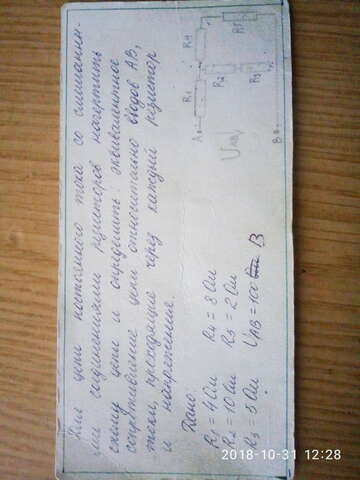 Для цепи постоянного тока со смешанны-
ми соединениями резисторов начертить
схему цепи и определить: эквивалентное
сопротивление цепи относительно вводов АВ,
токи, проходящие через каждый резистор
и напряжение.
Дано:
R1 = 4 Ом R4 = 8 Ом
R2 = 10 Ом R5 = 2 Ом
R3 = 5 Ом UAB = 100 В
R4 R5
R1 R2 R3
A B
UAB
2018-10-31 12:28